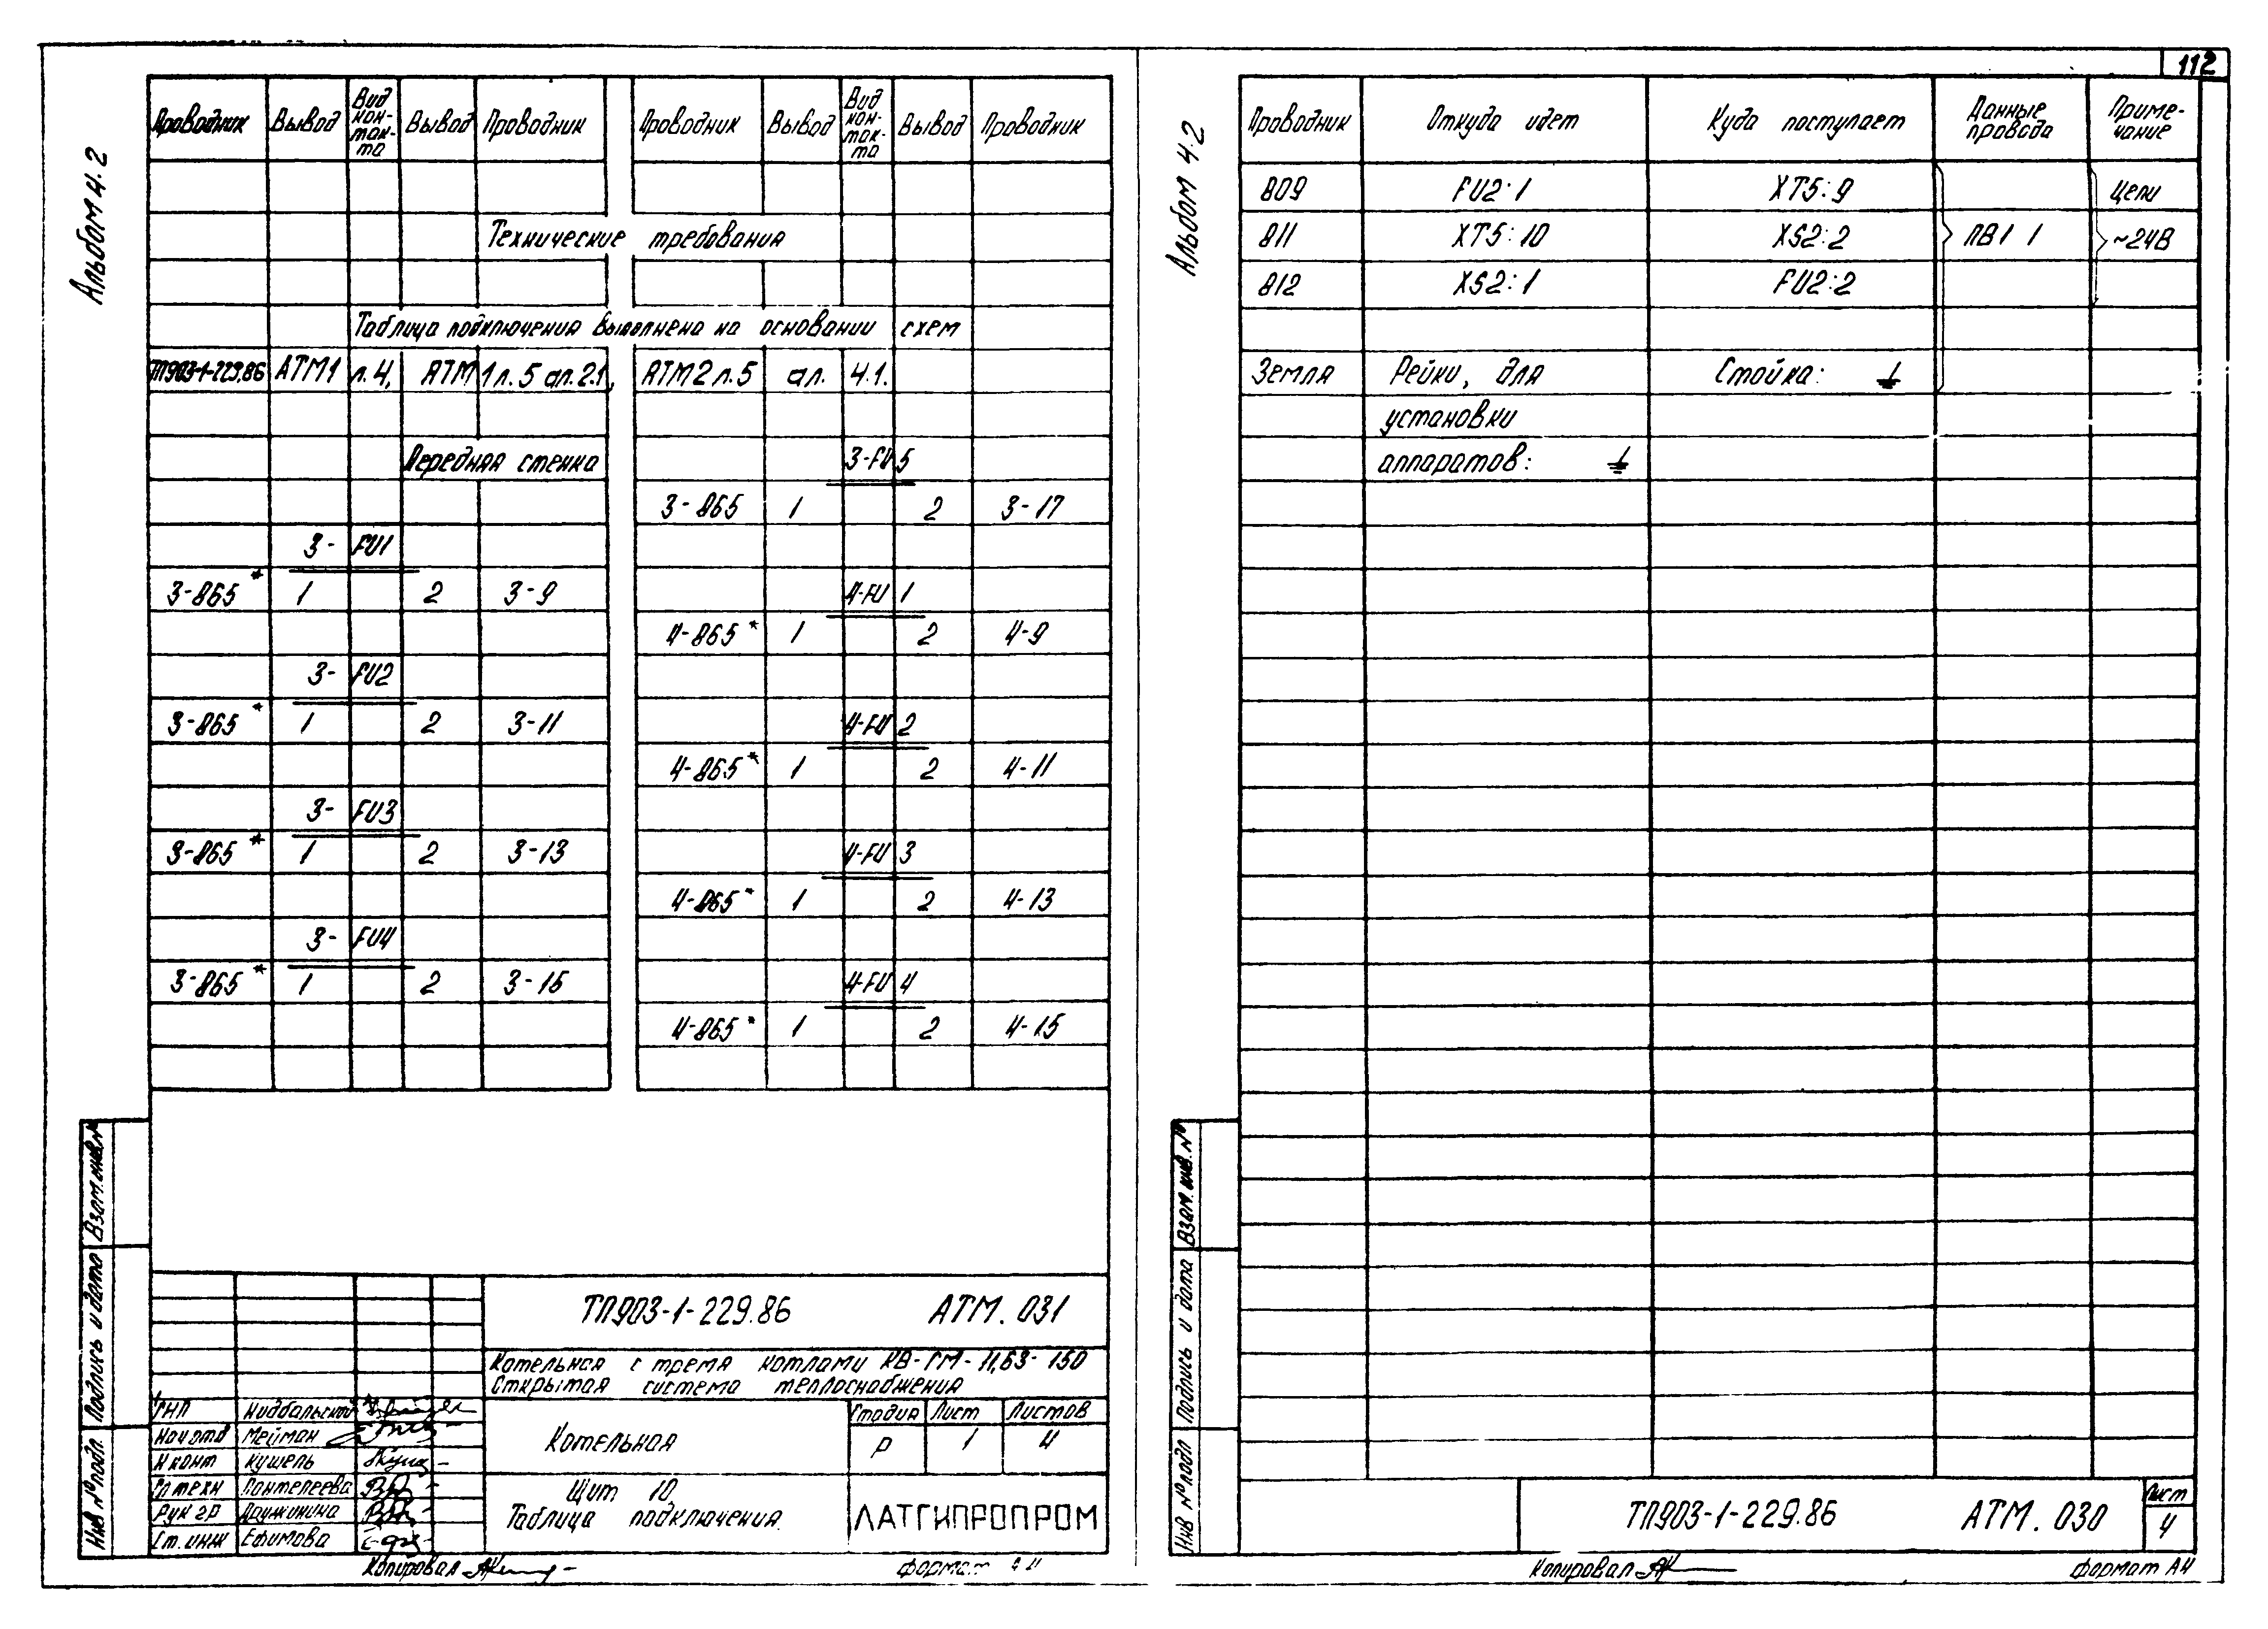 112
Альбом 4.2
Проводник Вывод Вид кон-так-та Вывод Проводник Проводник Вывод Вид кон-так-та Вывод Проводник
Технические требования
Таблица подключения выполнена на основании схем
ТП903-1-229.86 АТМ1 л.4, АТМ1 л.5 ал.2.1, АТМ2 л.5 ал. 4.1.
Передняя стенка
3-FU1
3-865* 1 2 3-9
3-FU2
3-865* 1 2 3-11
3-FU3
3-865* 1 2 3-13
3-FU4
3-865* 1 2 3-15
3-FU5
3-865 1 2 3-17
4-FU1
4-865* 1 2 4-9
4-FU2
4-865* 1 2 4-11
4-FU3
4-865* 1 2 4-13
4-FU4
4-865* 1 2 4-15
Взам.инв.№
Подпись и дата
Инв № подл.
ТП903-1-229.86 АТМ. 031
Котельная с тремя котлами КВ-ГМ-11,63-150
Открытая система теплоснабжения
ГИП Нидбальский
Нач отд Мейман
Н конт Кушель
Гл техн Пантелеева
Рук гр Дружинина
Ст. инж Ефимова
Котельная
Стадия Лист Листов
Р 1 4
Щит 10.
Таблица подключения.
ЛАТГИПРОПРОМ
Копировал
формат А4
Альбом 4.2
Проводник Откуда идет Куда поступает Данные провода Приме-чание
809 FU2:1 XT5:9 Цепи
811 XT5:10 XS2:2 ПВ1 1 ~24В
812 XS2:1 FU2:2
Земля Рейки, для Стойка: ⏚
установки
аппаратов: ⏚
Взам. инв. №
Подпись и дата
Инв № подл
ТП903-1-229.86 АТМ. 030
Лист
4
Копировал
формат А4